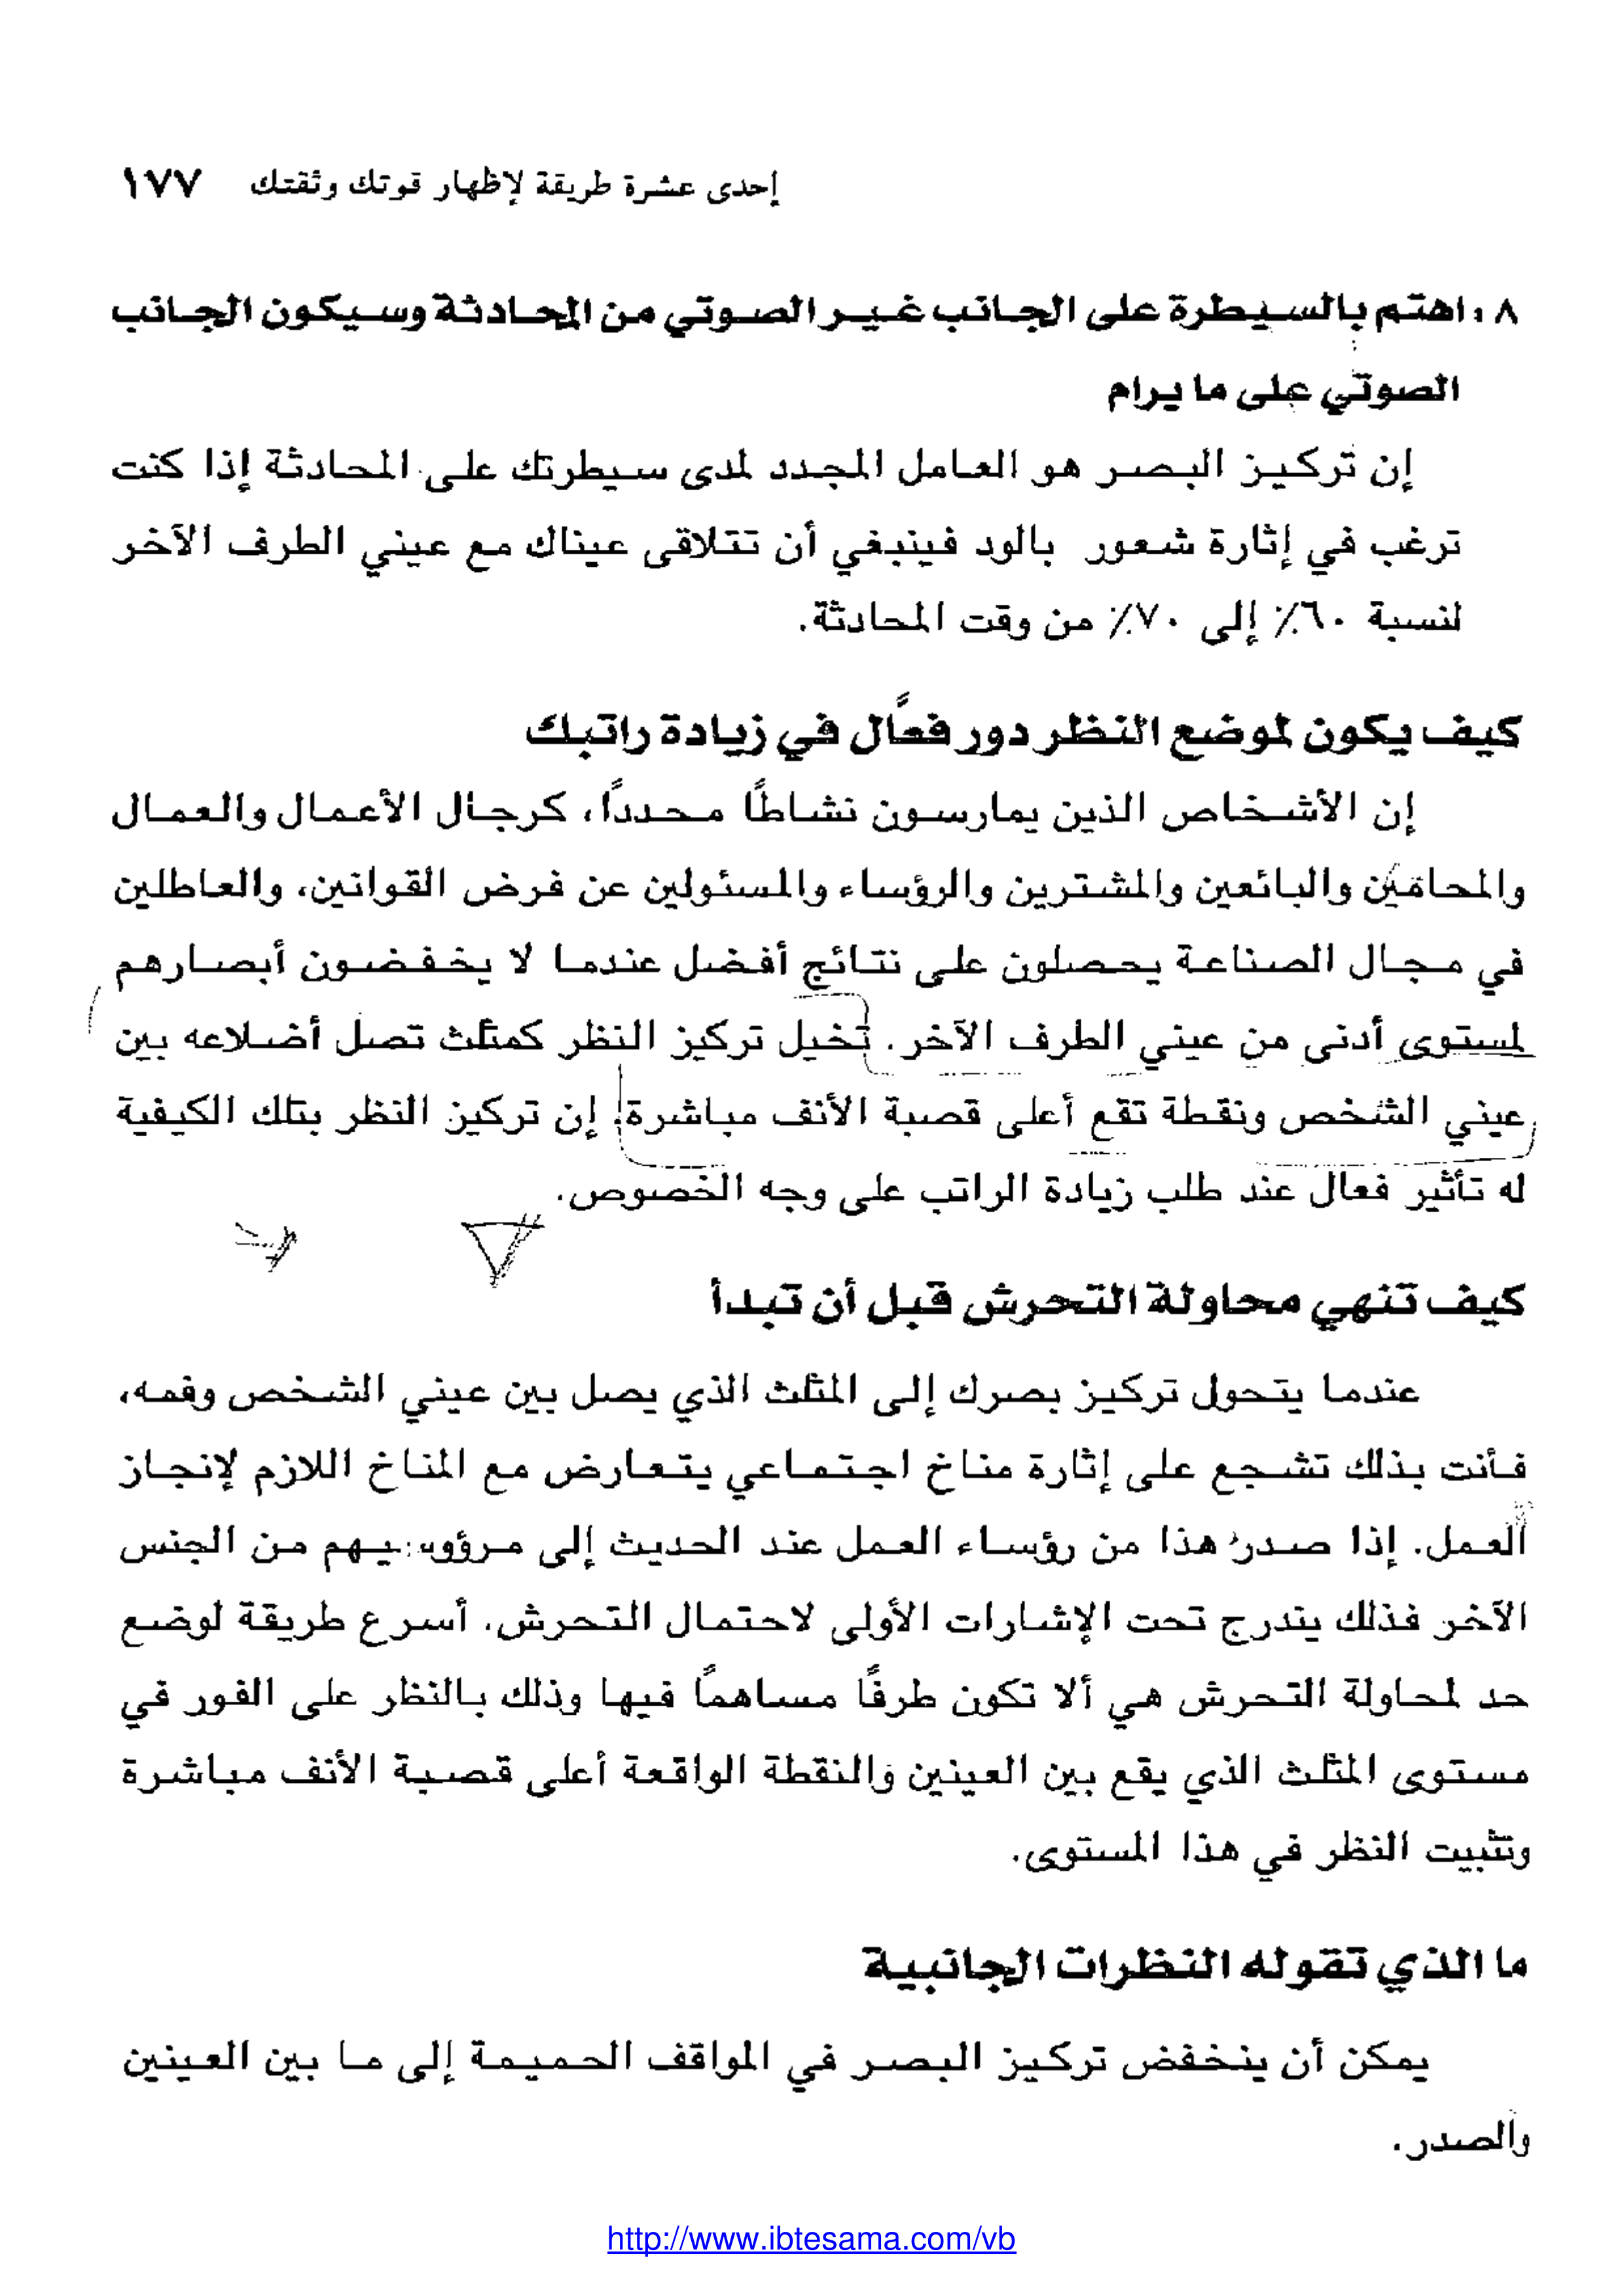 إحدى عشرة طريقة لإظهار قوتك وثقتك ١٧٧
٨. اهتم بالسيطرة على الجانب غير الصوتي من المحادثة وسيكون الجانب
الصوتي على ما يرام
إن تركيز البصر هو العامل المجدد لمدى سيطرتك على المحادثة إذا كنت
ترغب في إثارة شعور بالود فينبغي أن تتلاقى عيناك مع عيني الطرف الآخر
لنسبة ٦٠٪ إلى ٧٠٪ من وقت المحادثة.
كيف يكون لموضع النظر دور فعاًل في زيادة راتبك
إن الأشخاص الذين يمارسون نشاطًا محددًا، كرجال الأعمال والعمال
والمحامين والبائعين والمشترين والرؤساء والمسئولين عن فرض القوانين، والعاطلين
في مجال الصناعة يحصلون على نتائج أفضل عندما لا يخفضون أبصارهم
لمستوى أدنى من عيني الطرف الآخر. تخيل تركيز النظر كمثلث تصل أضلاعه بين
عيني الشخص ونقطة تقع أعلى قصبة الأنف مباشرة. إن تركيز النظر بتلك الكيفية
له تأثير فعال عند طلب زيادة الراتب على وجه الخصوص.
كيف تنهي محاولة التحرش قبل أن تبدأ
عندما يتحول تركيز بصرك إلى المثلث الذي يصل بين عيني الشخص وفمه،
فأنت بذلك تشجع على إثارة مناخ اجتماعي يتعارض مع المناخ اللازم لإنجاز
العمل. إذا صدر هذا من رؤساء العمل عند الحديث إلى مرؤوسيهم من الجنس
الآخر فذلك يندرج تحت الإشارات الأولى لاحتمال التحرش. أسرع طريقة لوضع
حد لمحاولة التحرش هي ألا تكون طرفًا مساهمًا فيها وذلك بالنظر على الفور في
مستوى المثلث الذي يقع بين العينين والنقطة الواقعة أعلى قصبة الأنف مباشرة
وتثبيت النظر في هذا المستوى.
ما الذي تقوله النظرات الجانبية
يمكن أن ينخفض تركيز البصر في المواقف الحميمة إلى ما بين العينين
والصدر.
http://www.ibtesama.com/vb